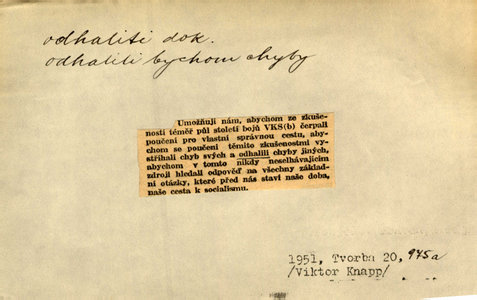 odhaliti dok.
odhalili bychom chyby
Umožňují nám, abychom ze zkuše-
ností téměř půl století bojů VKS(b) čerpali
poučení pro vlastní správnou cestu, aby-
chom se poučeni těmito zkušenostmi vy-
stříhali chyb svých a odhalili chyby jiných,
abychom v tomto nikdy neselhávajícím
zdroji hledali odpověď na všechny základ-
ní otázky, které před nás staví naše doba,
naše cesta k socialismu.
1951, Tvorba 20, 975a
/Viktor Knapp/